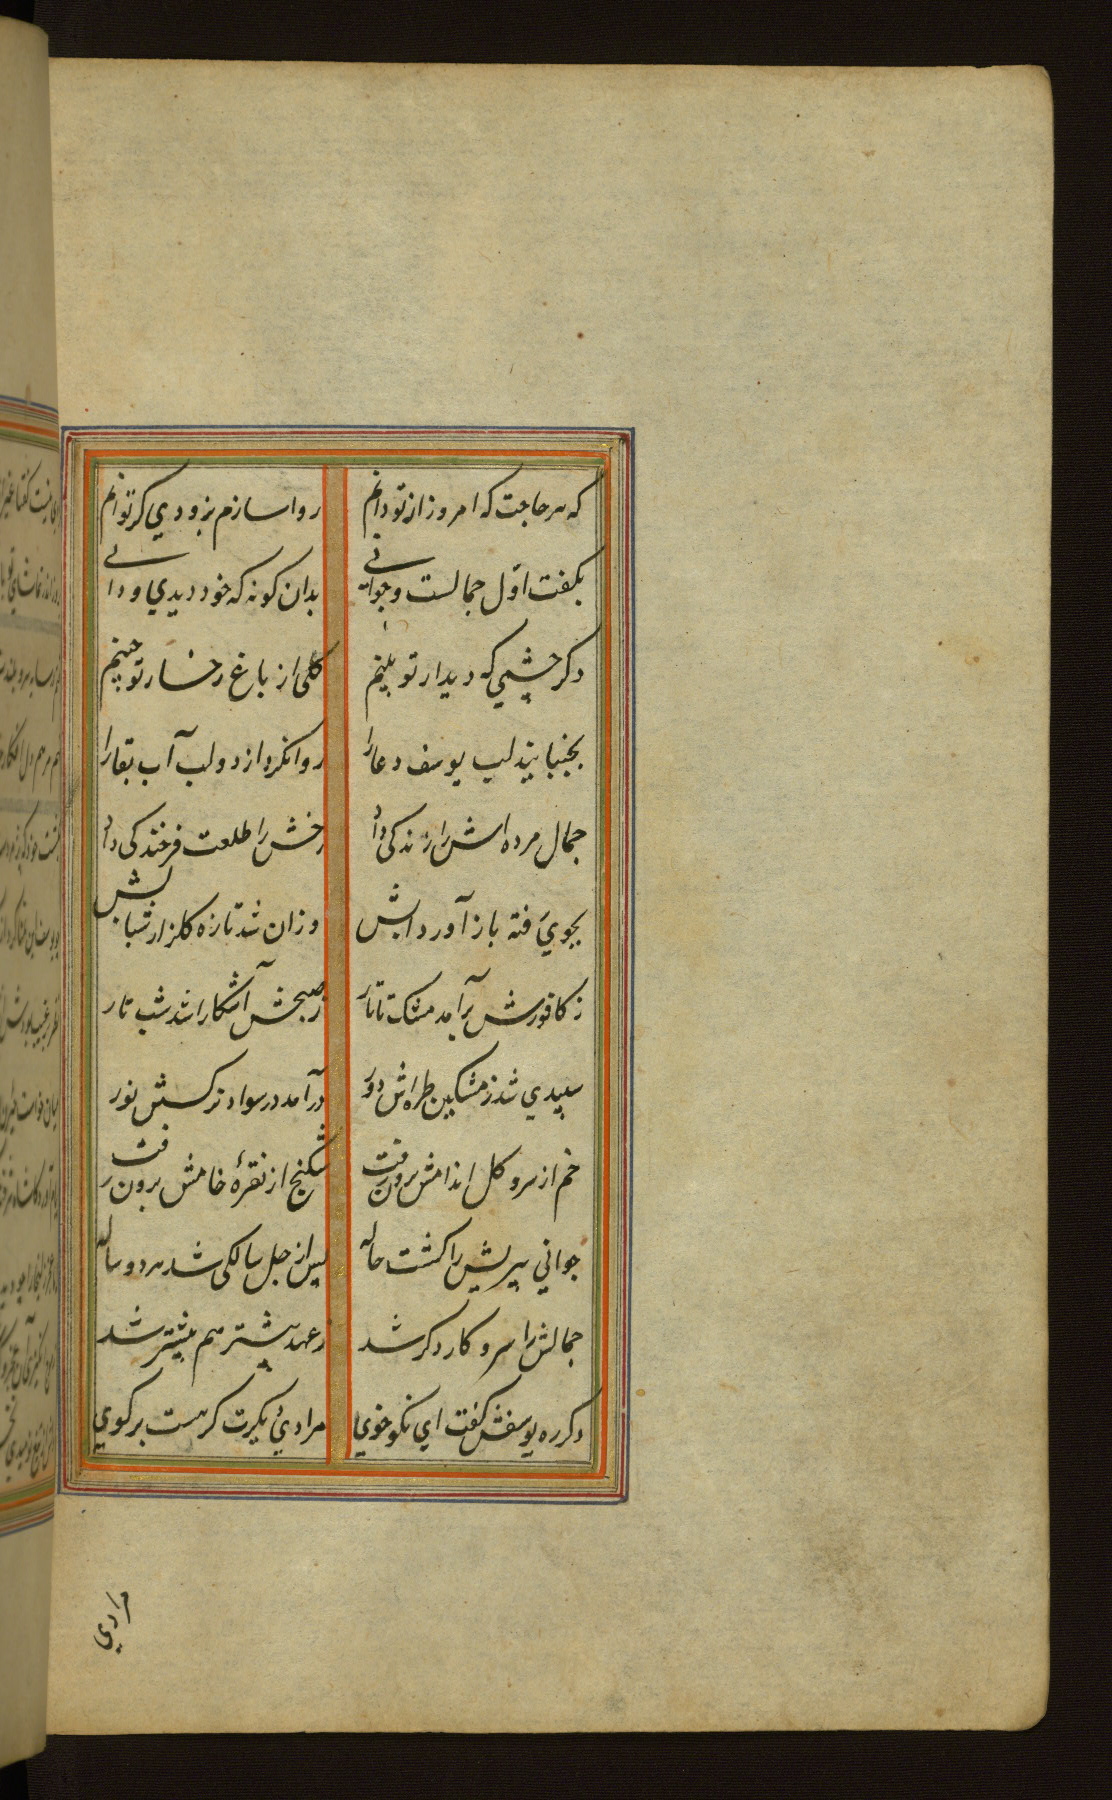 که هر حاجت که امروز از تو دانم روا سازم بزودي کر توانم
بکفت اوّل جمالست و جوانی بدان کونه که خود دیدي و دانی
دکر چشمي که دیدار تو بینم کلی از باغ رخسار تو چینم
بجنبانید لب یوسف دعا را روان کرد از دو لب آب بقا را
جمال مرده اش را زندکی داد رخش را طلعت فرخندکی داد
بجوي رفته باز آورد آبش وزان شد تازه کلزار شبابش
ز کافورش برآمد مشک تاتار ز صبحش آشکارا شد شب تار
سپیدي شد ز مشکین طره اش دور درآمد در سواد نرکسش نور
خم از سرو کل اندامش برون رفت شکنج از نقرهٔ خامش برون رفت
جواني پیریش را کشت حاله پس از چل سالکی شد هژده ساله
جمالش را سر و کار دکر شد ز عهد پیشتر هم بیشتر شد
دکر ره یوسفش کفت اي نکو خوي مرادي دیکرت کر هست بر کوي
مرادي